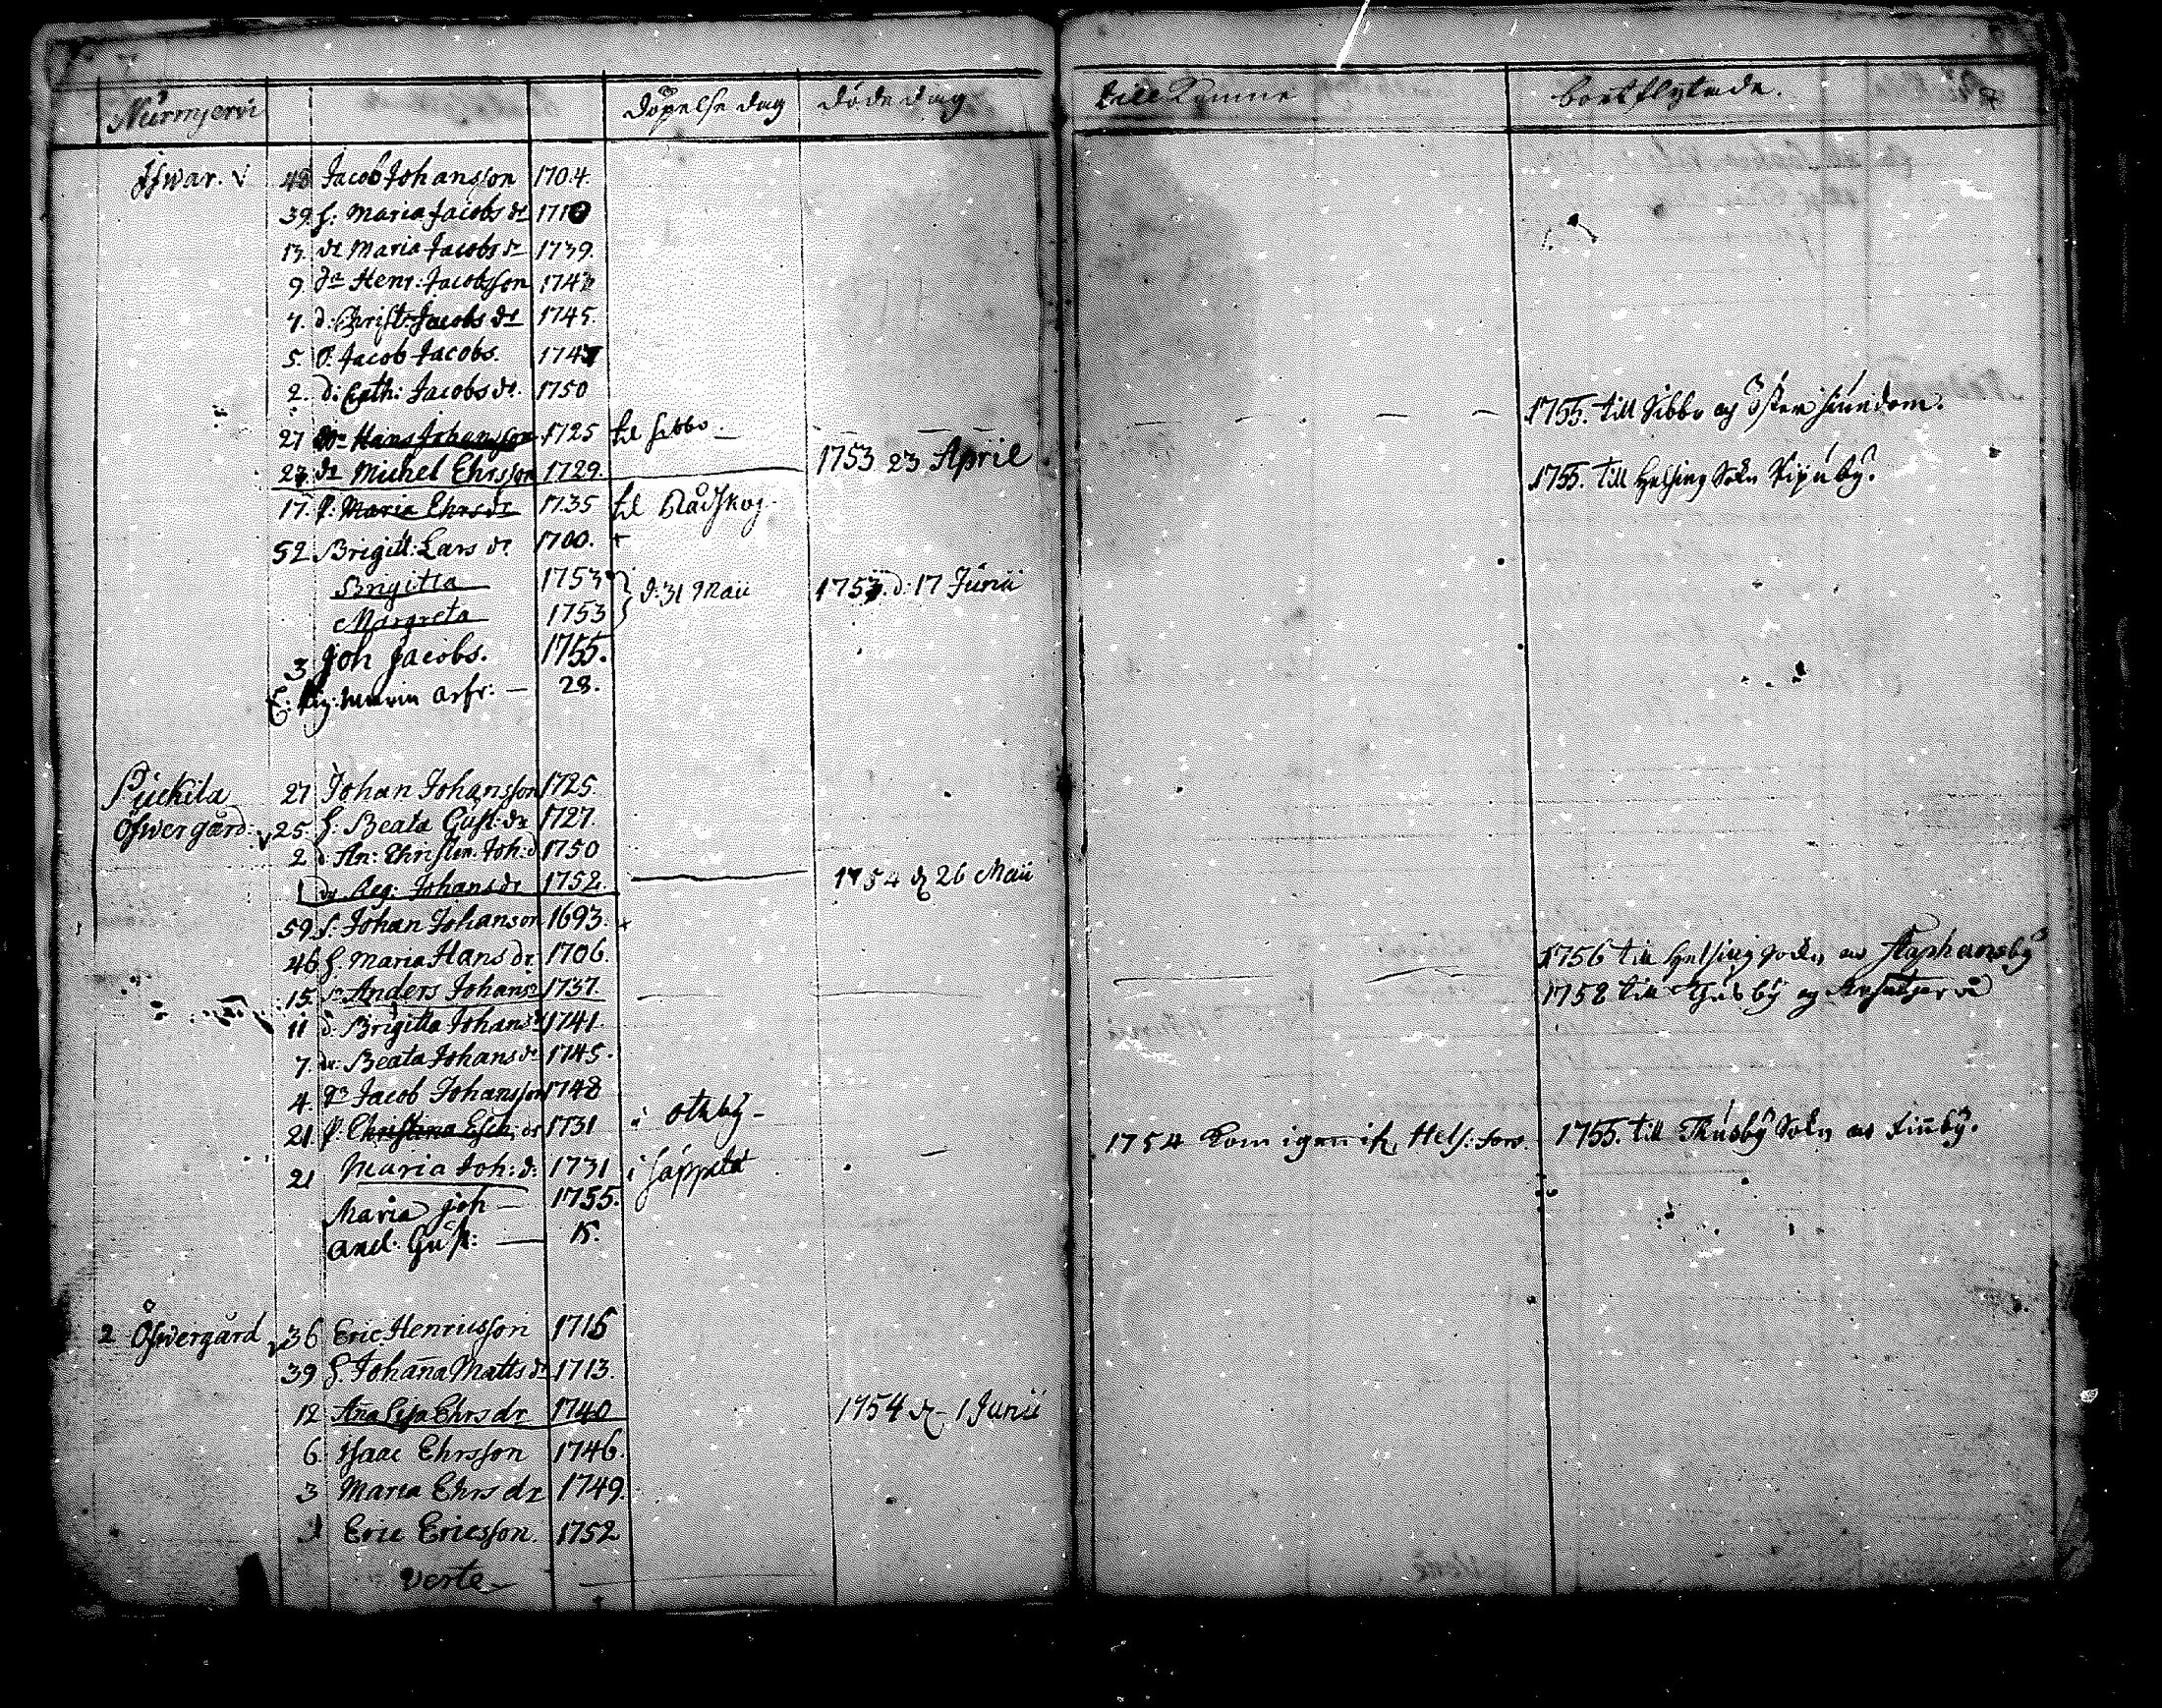 Nurmjervi Döpelse dag Döde dag till komne bortflytade.
Ifwar. 48 Jacob Johansson 1704.
39 h: Maria Jacobs dr 1710
13. dr Maria Jacobs dr 1739.
9. Henr: Jacobsson 1743
7. d: Christ: Jacobs dr 1745.
5. S. Jacob Jacobs. 1747
2. d: Cath: Jacobs dr. 1750
27 Hans Johansson 1725 til sibbo 1755. till Sibbo og Öster sundom.
23 Michel Ehrsson 1729. 1753 23 April
17. P: Maria Ehrs dr 1735 til 1755. till Helsing Sokn
52 Brigitt: Lars dr 1700. +
Brigitta 1753 } d. 31 Maii 1753. d. 17 Junii
Margreta 1753
3 Joh Jacobs. 1755.
28.
Puckila 27 Johan Johansson 1725.
Öfwergård: 25. h: Beata Gust: dr 1727.
2 d. An: Christin. Joh: d 1750
1 dr Reg: Johans dr 1752. 1754 d 26 Maii
59 s: Johan Johanson 1693. +
46 h. Maria Hans dr. 1706. 1756 till Helsing Sokn as Staphansby
15. Anders Johans 1737. 1758 till Thusby og
11 d: Brigitta Johans dr 1741.
7. dr: Beata Johans dr 1745.
4. Jacob Johansson 1748
21 P: Christina Esch: dr 1731 i otnby
21 Maria Joh: d: 1731 i 1754 kom igen Hels: fors. 1755. till Thusby Sokn as Finby.
Maria Joh 1755.
Gust: 15.
2 Öfwergård 36 Eric Henricsson 1716
39 h. Johana Matts dr 1713.
12 Ana Lisa Ehrs dr 1740 1754 d. 1 Junii
6. Isaac Ehrsson 1746.
3 Maria Ehrs dr 1749.
Eric Ericsson. 1752
Verte